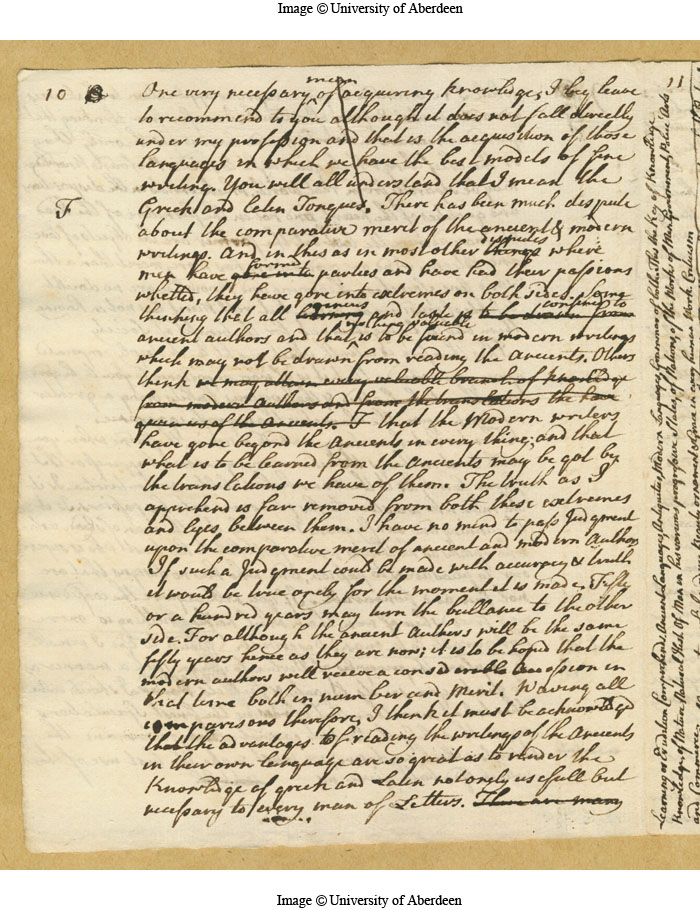 Image © University of Aberdeen
10 8
mean
One very necessary of acquiring knowledge, I beg leave
to recommend to you although it does not fall directly
under my profession and that is the acquisition of those
languages in which we have the best models of fine
writing. You will all understand that I mean the
F Greek and Latin Tongues. There has been much dispute
about the comparative merit of the ancient & modern
disputes
writings. And in this as in most other things where
formed
men have gone into parties and have had their passions
whetted, they have gone into extremes on both sides. Some
genius is confined to
thinking that all learning and taste is to be drawn from
nothing valuable
ancient authors and that is to be found in modern writings
which may not be drawn from reading the Ancients. Others
think we may attain every valuable branch of knowledge
from modern Authors and from the translations the have
given us of the Ancients. I that the Modern writers
have gone beyond the Ancients in every thing, and that
what is to be learned from the Ancients may be got by
the translations we have of them. The truth as I
apprehend is far removed from both these extremes
and lyes between them. I have no mind to pass Judgment
upon the comparative merit of ancient and modern Authors
If such a Judgment could be made with accuracy & truth
it would be true only for the moment it is made. Fifty
or a hundred years may turn the ballance to the other
side. For although the ancient Authors will be the same
fifty years hence as they are now; it is to be hoped that the
modern authors will receive a considerable Accession in
that time both in number and Merit. Waving all
comparisons therefore, I think it must be acknowledged
that the advantages of reading the writings of the Ancients
in their own language are so great as to render the
Knowledge of greek and Latin not onely usefull but
necessary to every man of Letters. There are many
11
Learning or Erudition Comprehends Ancient Languages Antiquities, Modern Languages, Grammar of both. This the Key of Knowledge
Knowledge of Nature Natural Hist. Of Man in his various progressive States, of Nations, of the Works of Men Government, Police Arts
and Commerce
Image © University of Aberdeen